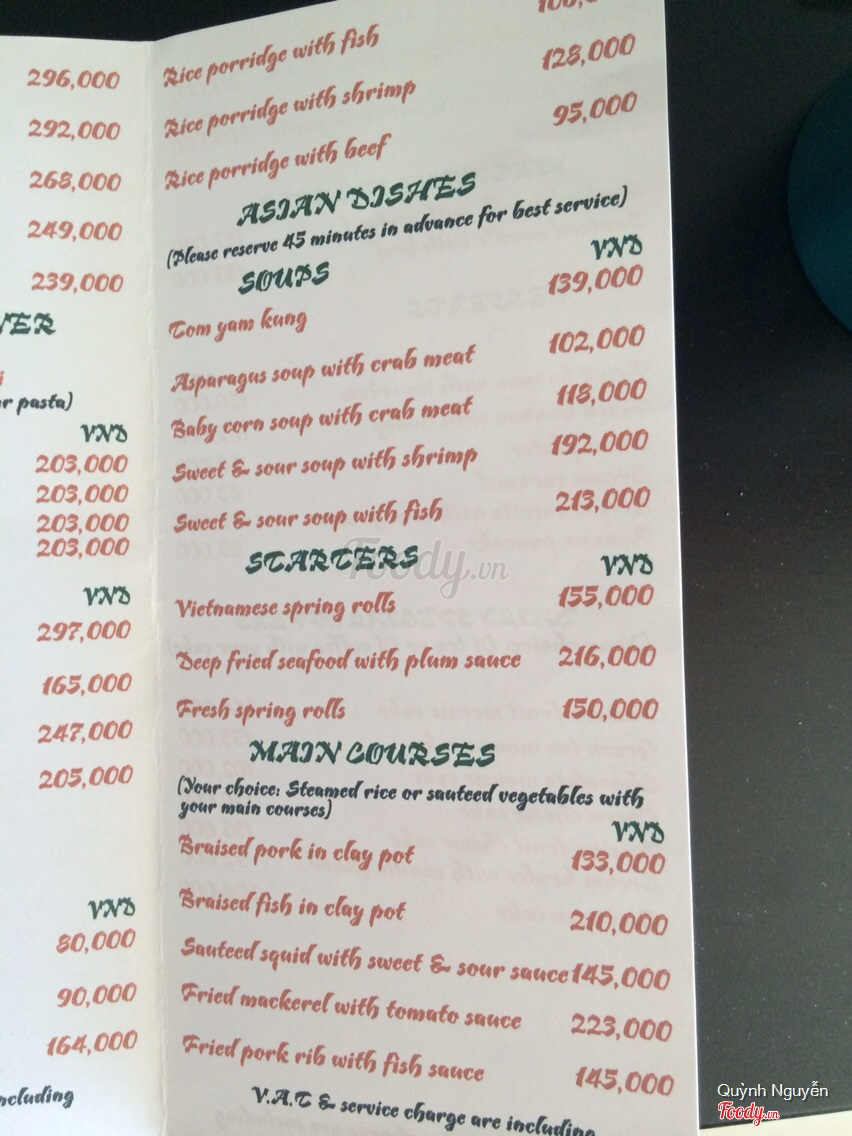 296,000
292,000
268,000
249,000
239,000
r pasta)
VND
203,000
203,000
203,000
203,000
VND
297,000
165,000
247,000
205,000
VND
80,000
90,000
164,000
Rice porridge with fish
Rice porridge with shrimp 128,000
Rice porridge with beef 95,000
ASIAN DISHES
(Please reserve 45 minutes in advance for best service)
SOUPS VND
Tom yam kung 139,000
Asparagus soup with crab meat 102,000
Baby corn soup with crab meat 118,000
Sweet & sour soup with shrimp 192,000
Sweet & sour soup with fish 213,000
STARTERS VND
Vietnamese spring rolls 155,000
Deep fried seafood with plum sauce 216,000
Fresh spring rolls 150,000
MAIN COURSES
(Your choice: Steamed rice or sauteed vegetables with
your main courses)
VND
Braised pork in clay pot 133,000
Braised fish in clay pot 210,000
Sauteed squid with sweet & sour sauce 145,000
Fried mackerel with tomato sauce 223,000
Fried pork rib with fish sauce 145,000
V.A.T & service charge are including
Foody.vn
Quỳnh Nguyễn
Foody.vn